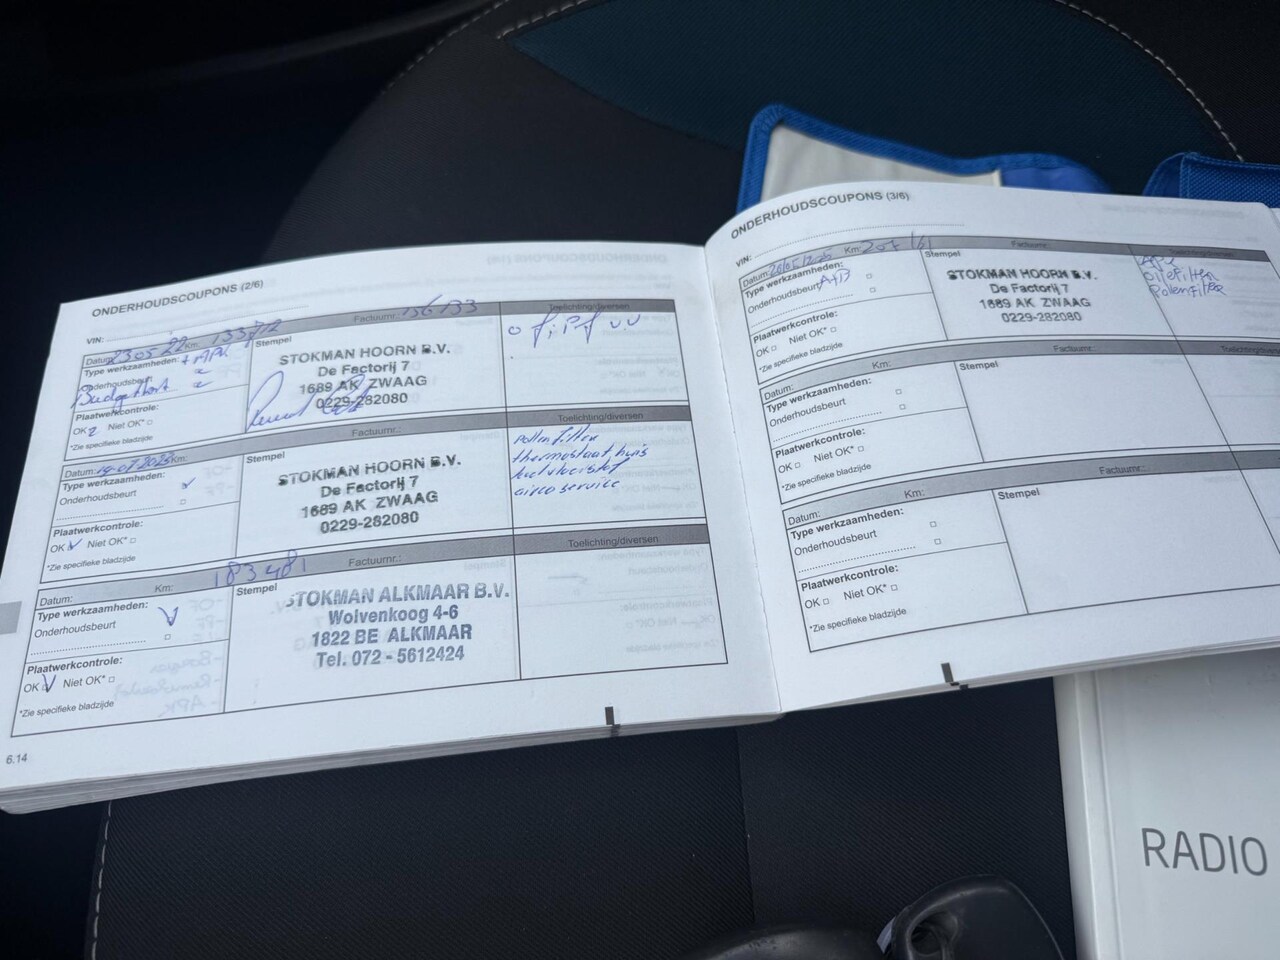 ONDERHOUDSCOUPONS (2/6)
VIN:
Datum: 23 05 22 Km: 133712 Factuurnr.: 156133 Toelichting/diversen
Type werkzaamheden: + APK
Onderhoudsbeurt
Plaatwerkcontrole:
OK Niet OK*
*Zie specifieke bladzijde
Stempel
STOKMAN HOORN B.V.
De Factorij 7
1689 AK ZWAAG
0229-282080
Datum: 19-07-2023 Km: Factuurnr.: Toelichting/diversen
Type werkzaamheden:
Onderhoudsbeurt
Plaatwerkcontrole:
OK V Niet OK*
*Zie specifieke bladzijde
Stempel
STOKMAN HOORN B.V.
De Factorij 7
1689 AK ZWAAG
0229-282080
Pollenfilter
thermostaathuis
koelvloeistof
aircoservice
Datum: Km: 183481 Factuurnr.: Toelichting/diversen
Type werkzaamheden:
Onderhoudsbeurt V
Plaatwerkcontrole:
OK V Niet OK*
*Zie specifieke bladzijde
Stempel
STOKMAN ALKMAAR B.V.
Wolvenkoog 4-6
1822 BE ALKMAAR
Tel. 072 - 5612424
6.14
ONDERHOUDSCOUPONS (3/6)
VIN:
Datum: Km: Factuurnr.: Toelichting/diversen
Type werkzaamheden:
Onderhoudsbeurt A+B
Plaatwerkcontrole:
OK Niet OK*
*Zie specifieke bladzijde
Stempel
STOKMAN HOORN B.V.
De Factorij 7
1689 AK ZWAAG
0229-282080
APK
oliefilter
Pollenfilter
Datum: Km: Factuurnr.:
Type werkzaamheden:
Onderhoudsbeurt
Plaatwerkcontrole:
OK Niet OK*
*Zie specifieke bladzijde
Stempel
Datum: Km: Factuurnr.:
Type werkzaamheden:
Onderhoudsbeurt
Plaatwerkcontrole:
OK Niet OK*
*Zie specifieke bladzijde
Stempel
RADIO